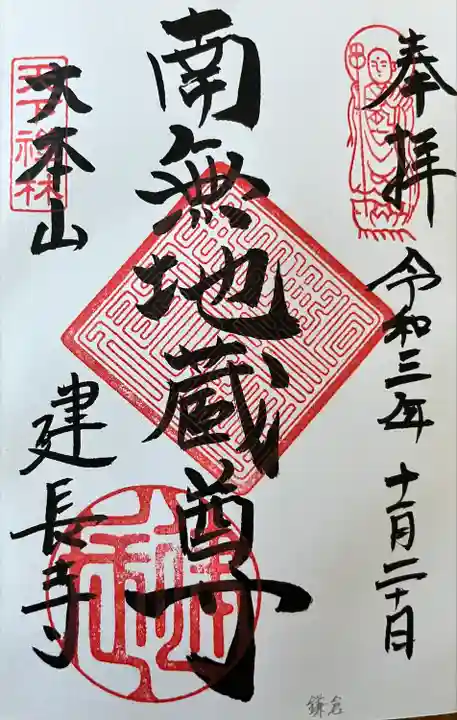 奉拝
令和三年 十一月二十日
南無地蔵尊
大本山
建長寺
天下禅林
鎌倉